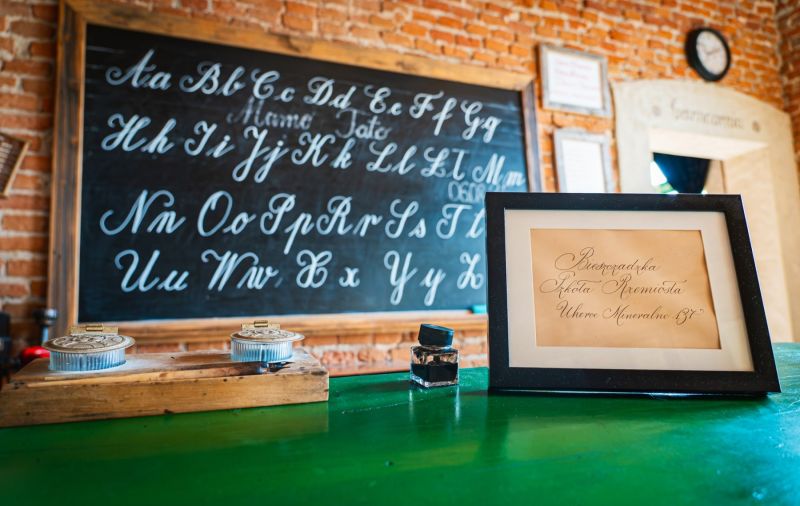 Aa Bb Cc Dd Ee Ff Gg
Mamo Tato
Hh Ii Jj Kk Ll Łł Mm
0608
Nn Oo Pp Rr Ss Tt
Uu Ww Xx Yy Z
Bieszczadzka
Szkoła Rzemiosła
Uherce Mineralne 137"